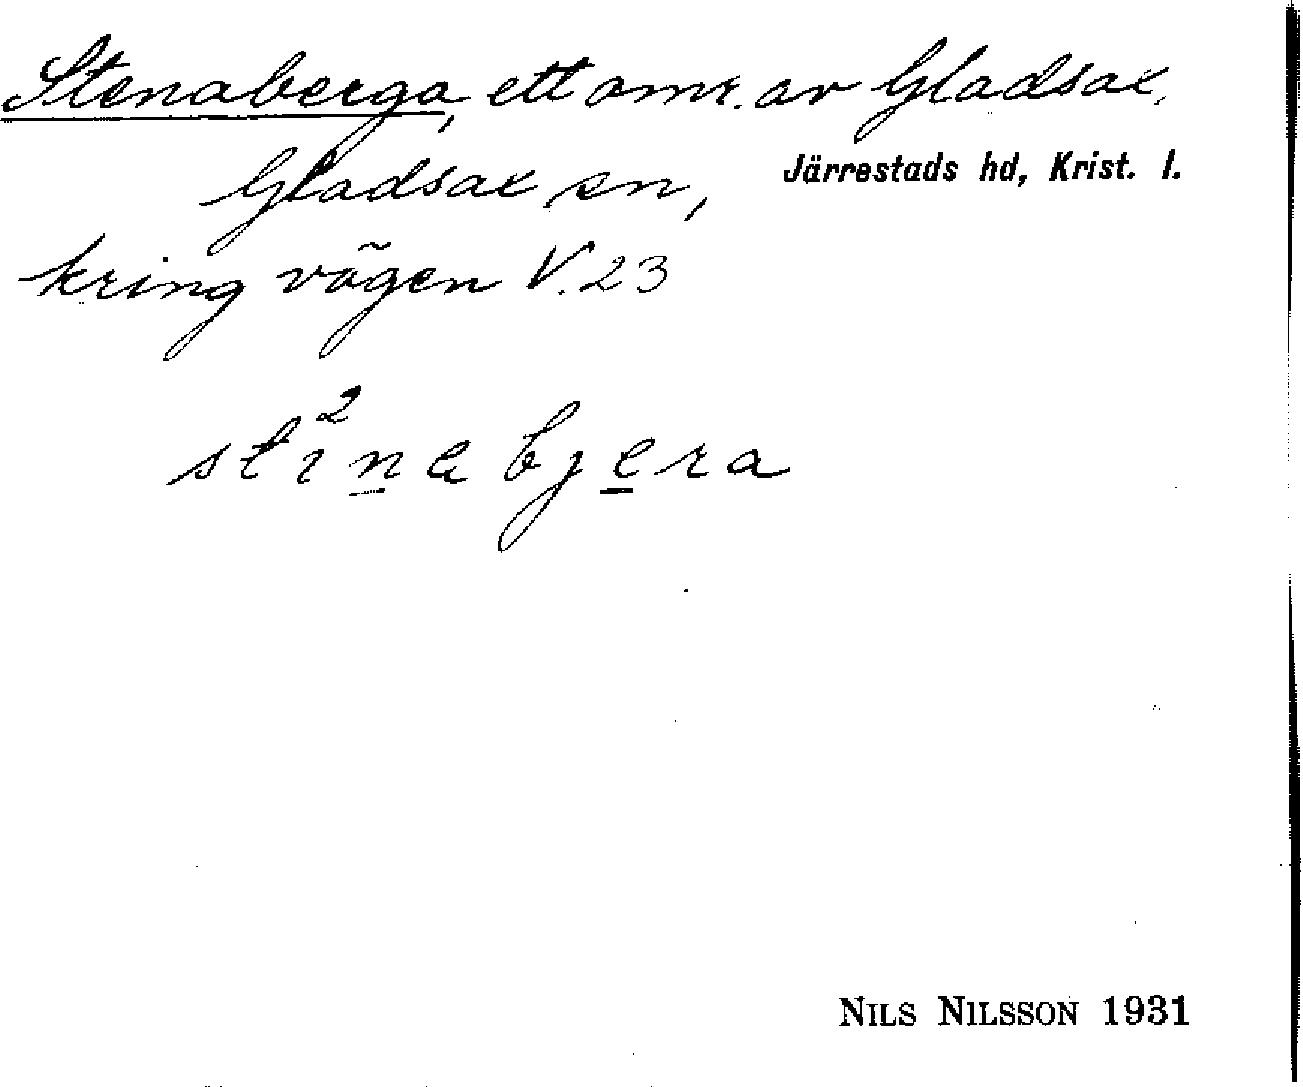 Stenaberga, ett omr. av Gladsax,
Gladsax sn, Järrestads hd, Krist. l.
kring vägen V. 23
2
stina bjera
NILS NILSSON 1931